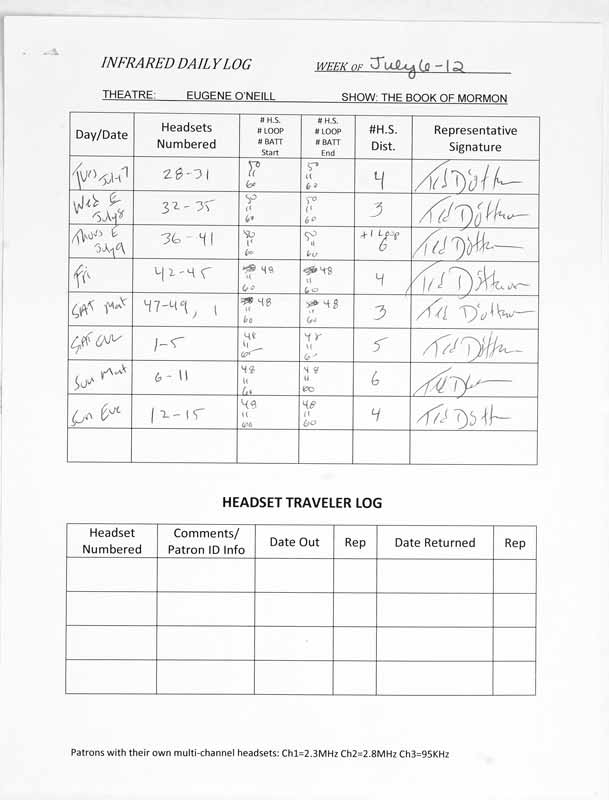 INFRARED DAILY LOG WEEK OF July 6-12
THEATRE: EUGENE O'NEILL SHOW: THE BOOK OF MORMON
Day/Date Headsets Numbered # H.S. # LOOP # BATT Start # H.S. # LOOP # BATT End #H.S. Dist. Representative Signature
Tues July 7 28-31 50 11 60 50 11 60 4
Wed E July 8 32-35 50 11 60 50 11 60 3
Thurs E July 9 36-41 50 11 60 50 11 60 +1 Loop 6
Fri 42-45 48 11 60 48 11 60 4
SAT Mat 47-49, 1 48 11 60 48 11 60 3
SAT EVE 1-5 48 11 48 11 5
Sun Mat 6-11 48 11 60 48 11 60 6
Sun Eve 12-15 48 11 60 48 11 60 4
HEADSET TRAVELER LOG
Headset Numbered Comments/ Patron ID Info Date Out Rep Date Returned Rep
Patrons with their own multi-channel headsets: Ch1=2.3MHz Ch2=2.8MHz Ch3=95KHz